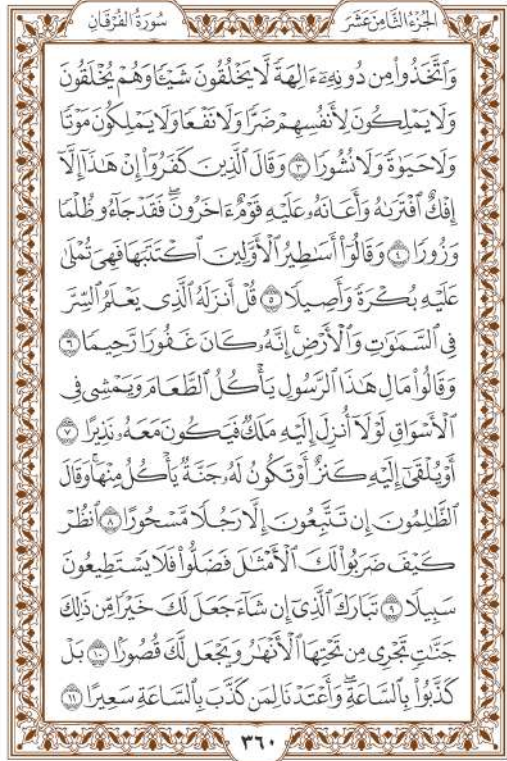 الجُزْءُ الثَّامِنَ عَشَرَ سُورَةُ الفُرْقَانِ
وَٱتَّخَذُوا۟ مِن دُونِهِۦٓ ءَالِهَةً لَّا يَخْلُقُونَ شَيْـًٔا وَهُمْ يُخْلَقُونَ
وَلَا يَمْلِكُونَ لِأَنفُسِهِمْ ضَرًّا وَلَا نَفْعًا وَلَا يَمْلِكُونَ مَوْتًا
وَلَا حَيَوٰةً وَلَا نُشُورًا ٣ وَقَالَ ٱلَّذِينَ كَفَرُوٓا۟ إِنْ هَـٰذَآ إِلَّآ
إِفْكٌ ٱفْتَرَىٰهُ وَأَعَانَهُۥ عَلَيْهِ قَوْمٌ ءَاخَرُونَ ۖ فَقَدْ جَآءُو ظُلْمًا
وَزُورًا ٤ وَقَالُوٓا۟ أَسَـٰطِيرُ ٱلْأَوَّلِينَ ٱكْتَتَبَهَا فَهِىَ تُمْلَىٰ
عَلَيْهِ بُكْرَةً وَأَصِيلًا ٥ قُلْ أَنزَلَهُ ٱلَّذِى يَعْلَمُ ٱلسِّرَّ
فِى ٱلسَّمَـٰوَٰتِ وَٱلْأَرْضِ ۚ إِنَّهُۥ كَانَ غَفُورًا رَّحِيمًا ٦
وَقَالُوا۟ مَالِ هَـٰذَا ٱلرَّسُولِ يَأْكُلُ ٱلطَّعَامَ وَيَمْشِى فِى
ٱلْأَسْوَاقِ ۙ لَوْلَآ أُنزِلَ إِلَيْهِ مَلَكٌ فَيَكُونَ مَعَهُۥ نَذِيرًا ٧
أَوْ يُلْقَىٰٓ إِلَيْهِ كَنزٌ أَوْ تَكُونُ لَهُۥ جَنَّةٌ يَأْكُلُ مِنْهَا ۚ وَقَالَ
ٱلظَّـٰلِمُونَ إِن تَتَّبِعُونَ إِلَّا رَجُلًا مَّسْحُورًا ٨ ٱنظُرْ
كَيْفَ ضَرَبُوا۟ لَكَ ٱلْأَمْثَـٰلَ فَضَلُّوا۟ فَلَا يَسْتَطِيعُونَ
سَبِيلًا ٩ تَبَارَكَ ٱلَّذِىٓ إِن شَآءَ جَعَلَ لَكَ خَيْرًا مِّن ذَٰلِكَ
جَنَّـٰتٍ تَجْرِى مِن تَحْتِهَا ٱلْأَنْهَـٰرُ وَيَجْعَل لَّكَ قُصُورًۢا ١٠ بَلْ
كَذَّبُوا۟ بِٱلسَّاعَةِ ۖ وَأَعْتَدْنَا لِمَن كَذَّبَ بِٱلسَّاعَةِ سَعِيرًا ١١
٣٦٠